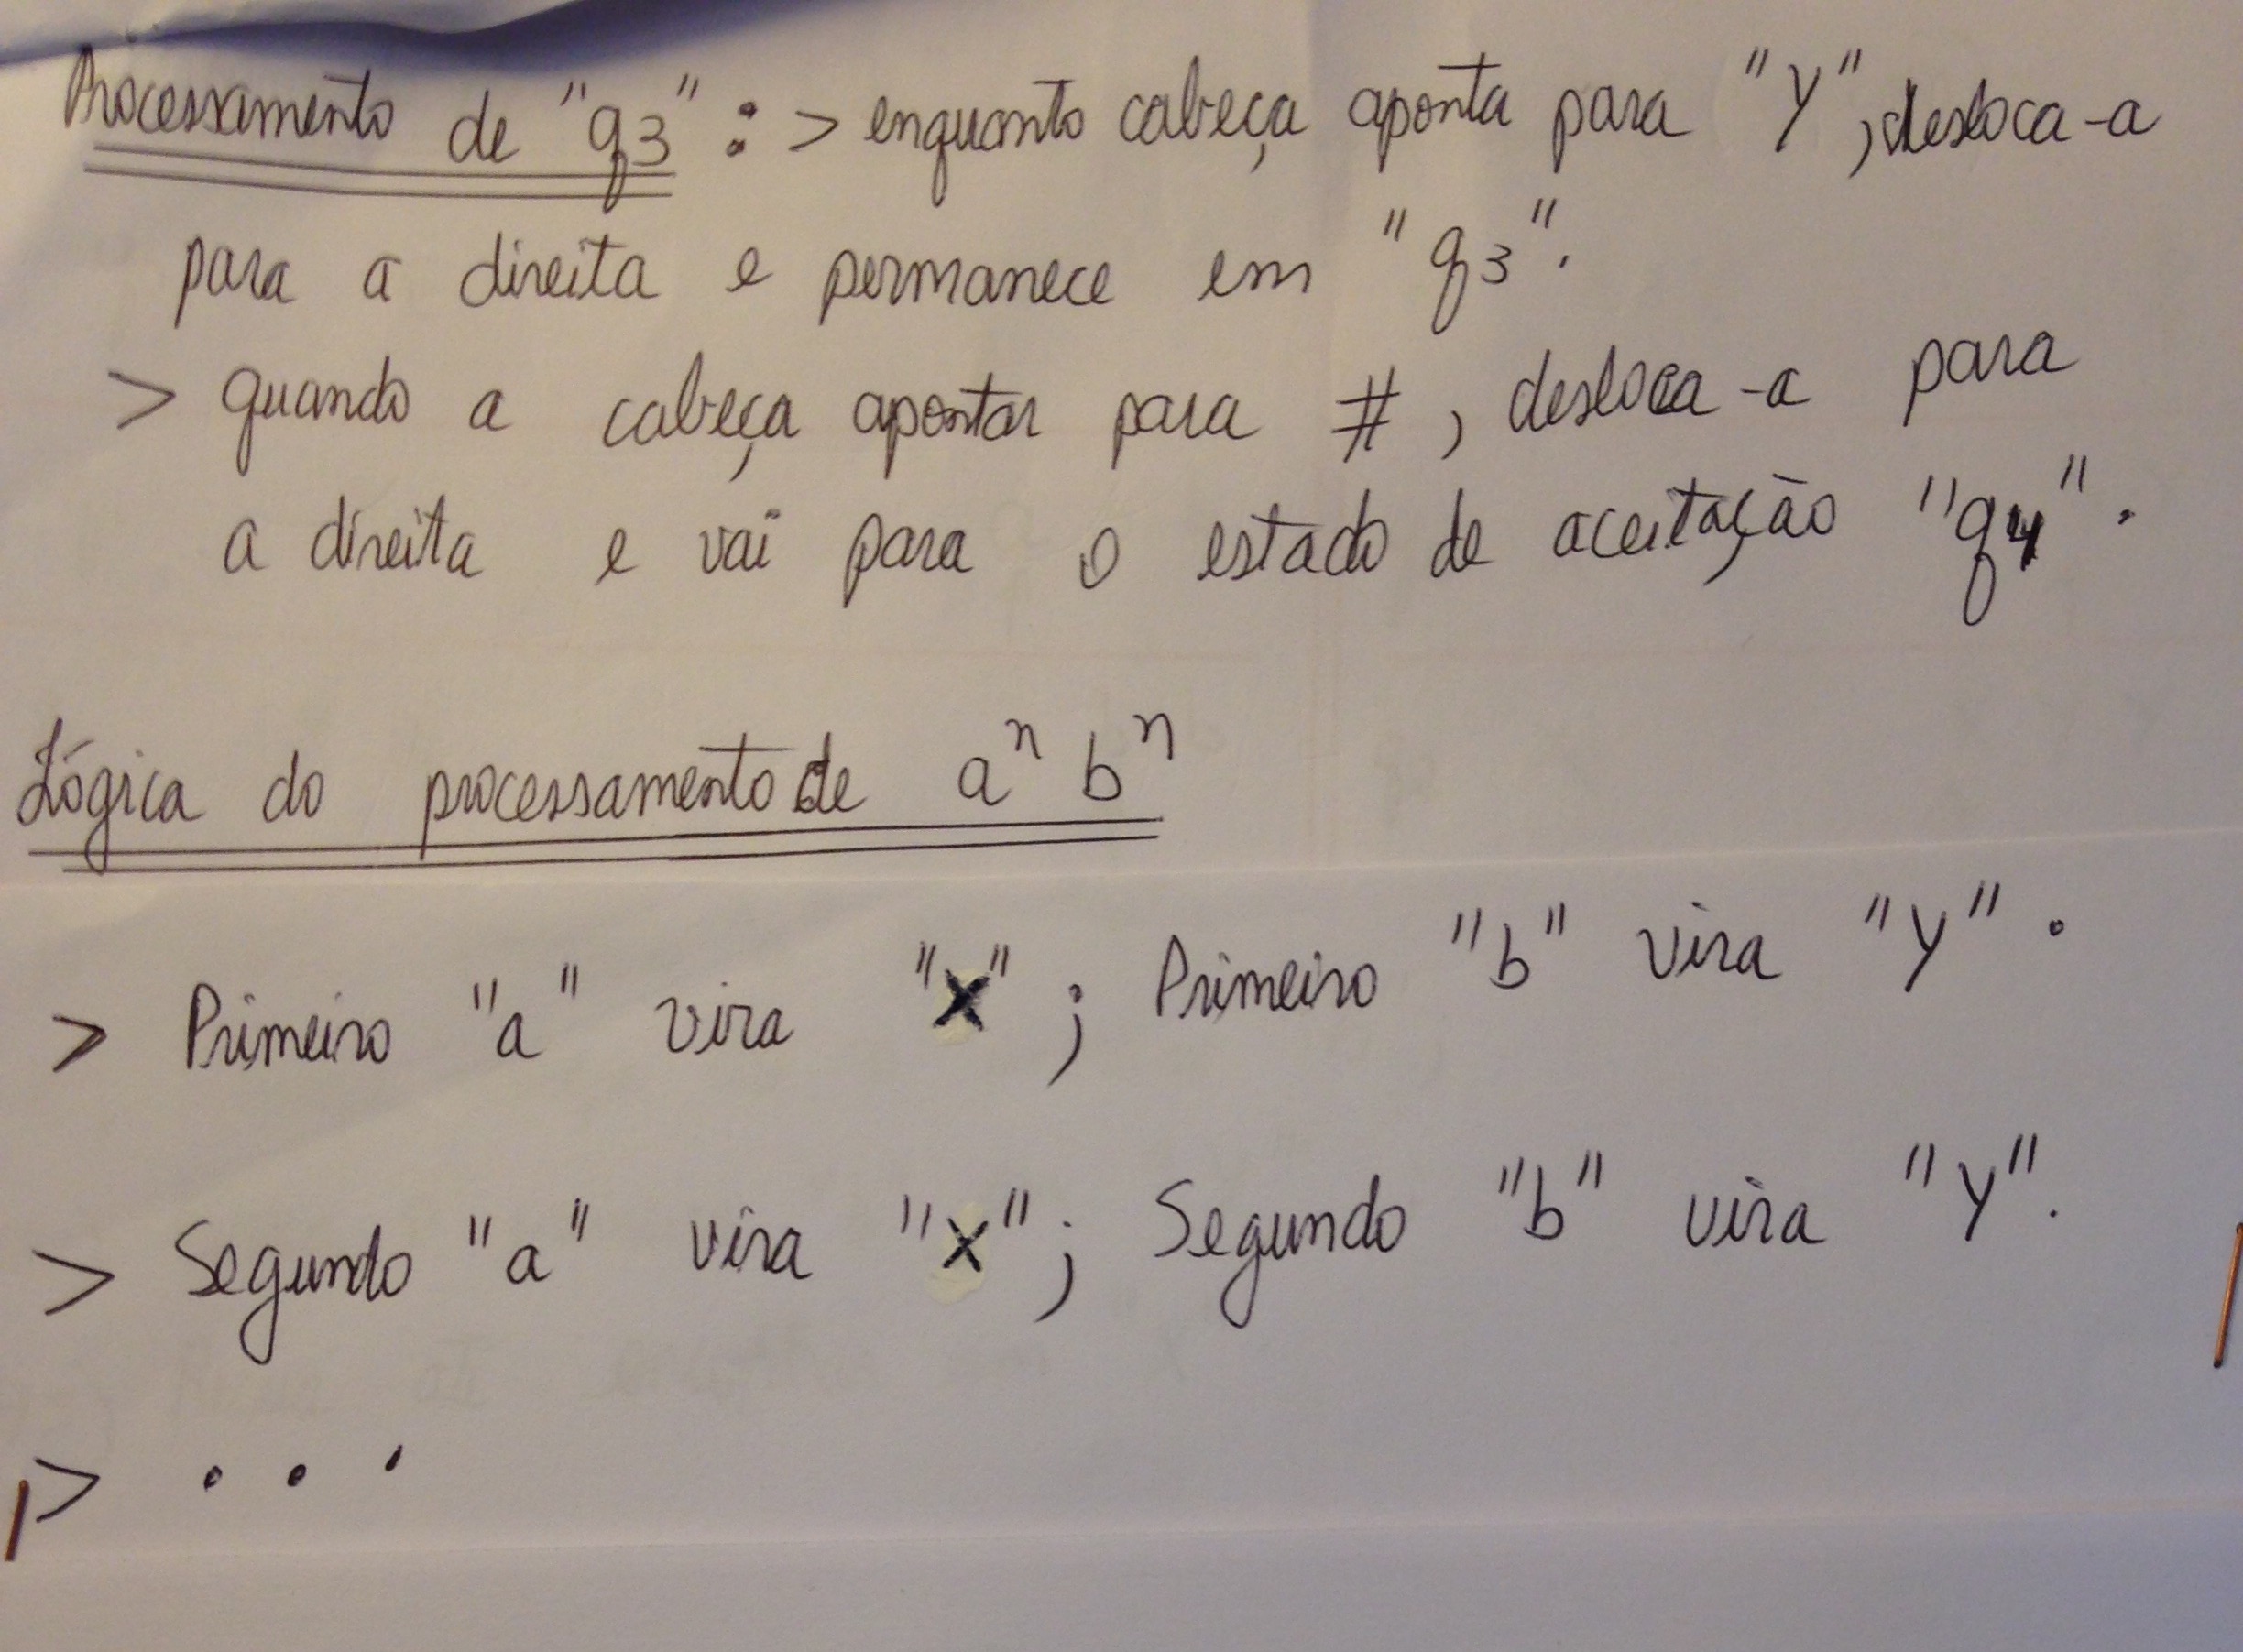 Processamento de "q3" : > enquanto cabeça aponta para "Y", desloca-a
para a direita e permanece em "q3".
> quando a cabeça apontar para #, desloca-a para
a direita e vai para o estado de aceitação "q4".
Lógica do processamento de aⁿ bⁿ
> Primeiro "a" vira "X"; Primeiro "b" vira "Y".
> Segundo "a" vira "X"; Segundo "b" vira "Y".
> . . .